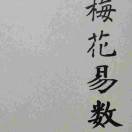 梅花易数